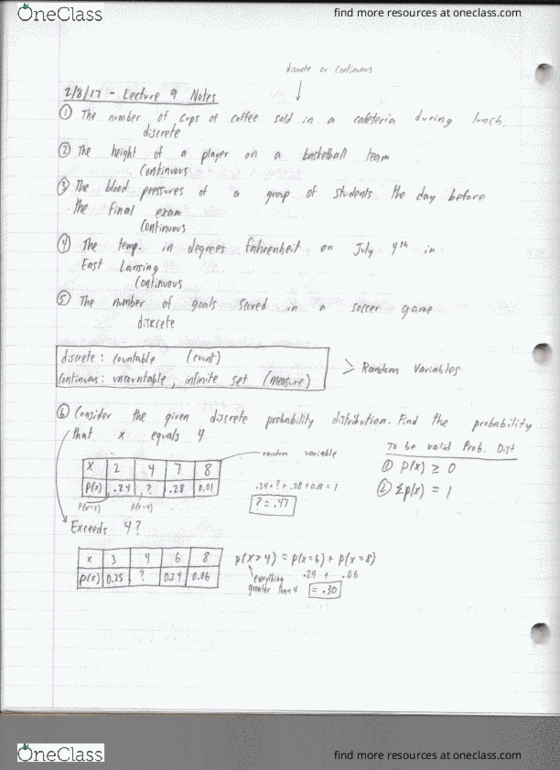 OneClass
find more resources at oneclass.com
discrete or continuous
2/8/17 - Lecture 9 Notes
① The number of cups of coffee sold in a cafeteria during lunch.
discrete
② The height of a player on a basketball team
continuous
③ The blood pressures of a group of students the day before
the final exam
continuous
④ The temp. in degrees fahrenheit on July 4th in
East Lansing
continuous
⑤ The number of goals scored in a soccer game
discrete
discrete: countable (count)
continuous: uncountable, infinite set (measure)
> Random Variables
⑥ Consider the given discrete probability distribution. Find the probability
that x equals 4
random variable
x 2 4 7 8
P(x) .24 ? .28 0.01
P(x=2) P(x=4)
.24+?+.28+0.01=1
?=.47
To be valid Prob. Dist
① P(x) ≥ 0
② Σp(x) = 1
Exceeds 4?
x 3 4 6 8
p(x) 0.25 ? 0.24 0.06
p(x>4) = p(x=6) + p(x=8)
everything greater than 4
.24 + .06
= .30
OneClass
find more resources at oneclass.com